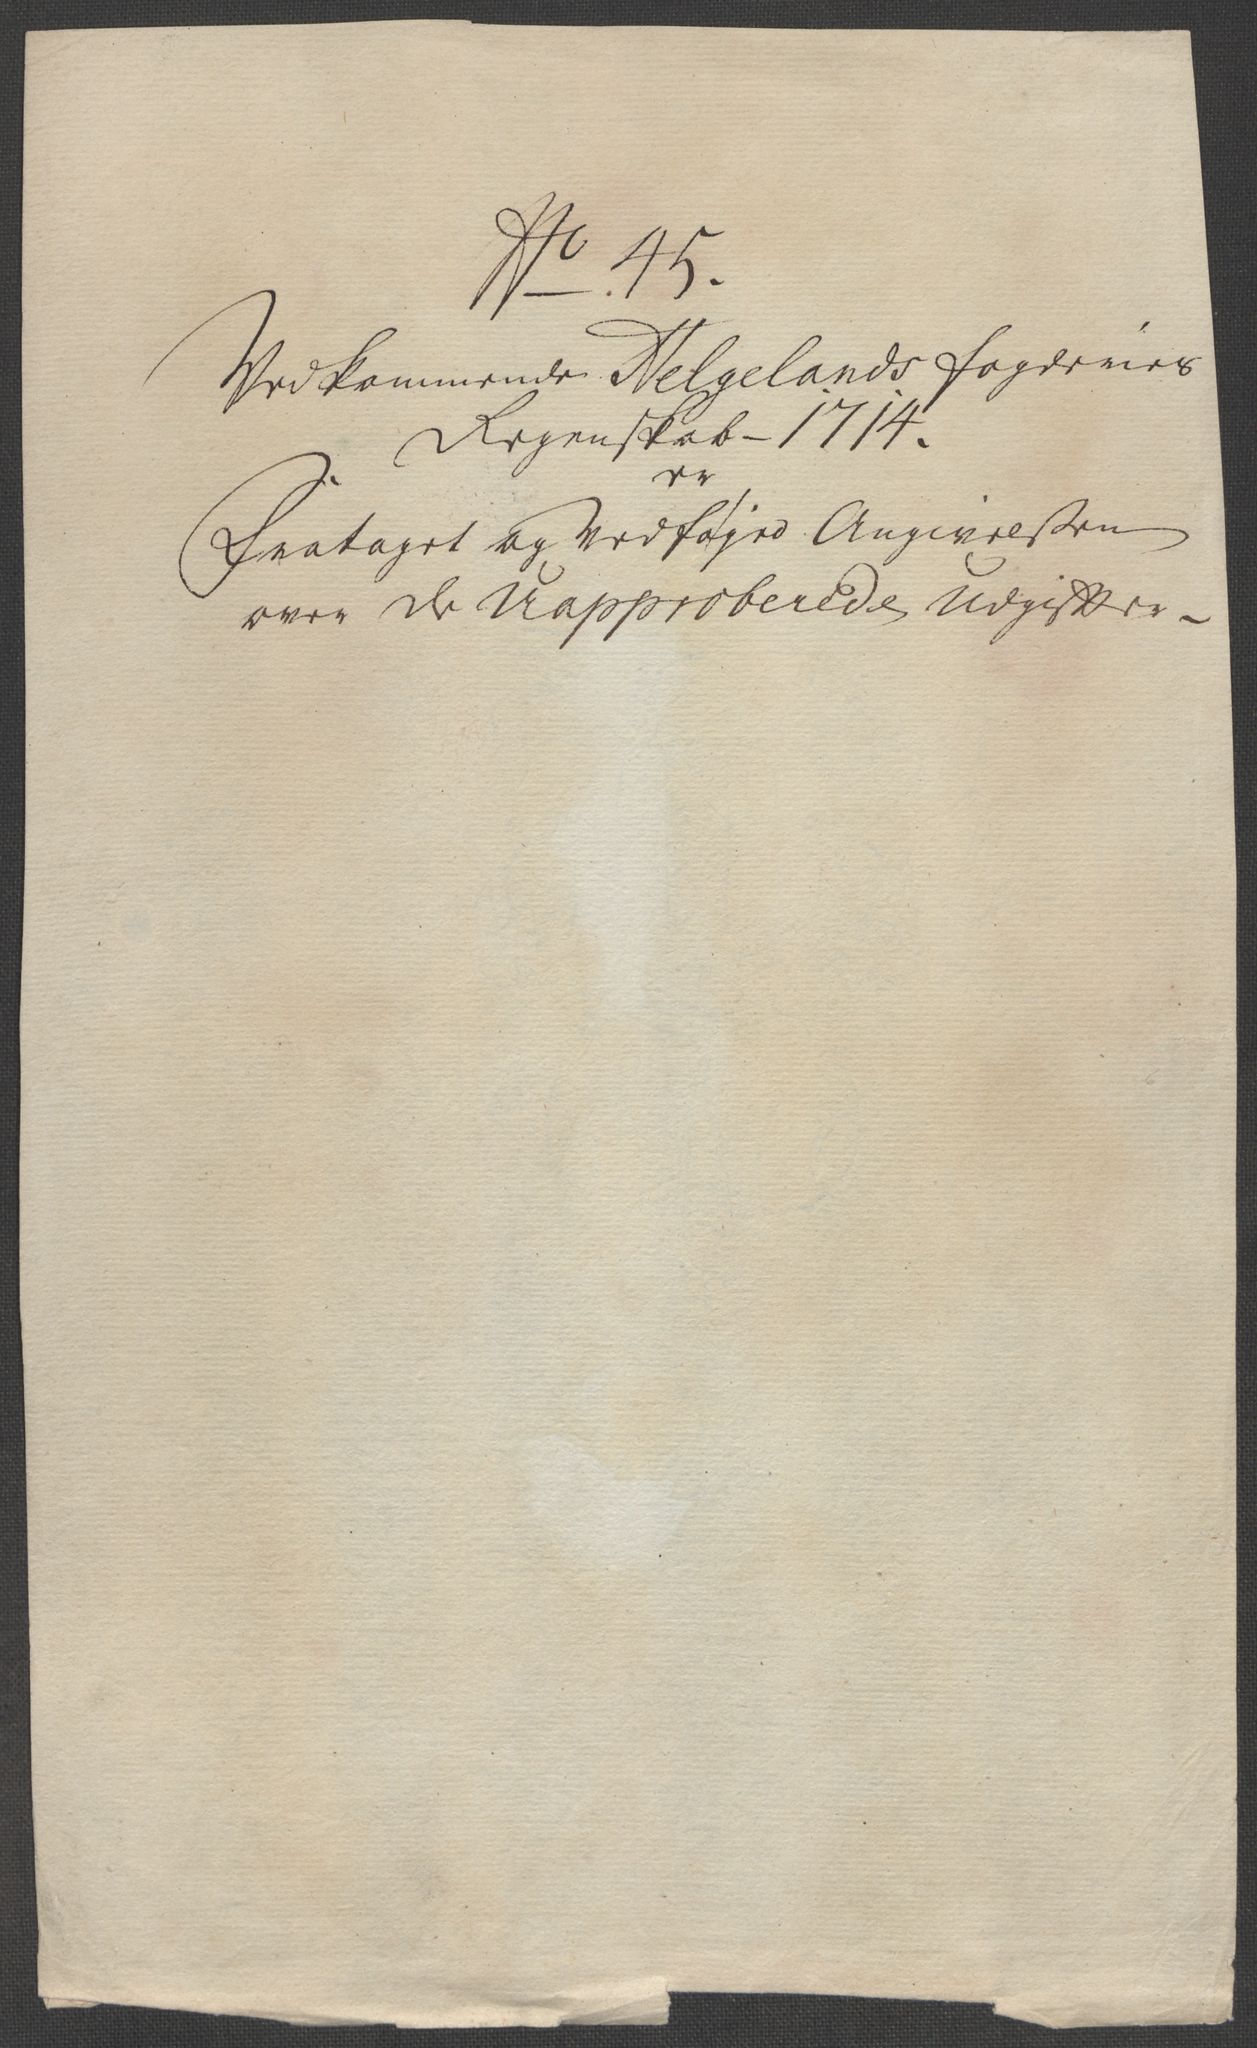 No. 45.
Vedkommende Helgelands fogderies
Regenskab - 1714.
er
Frataget og Vedføjed Angivelsen
over de Uapproberede Udgifter -